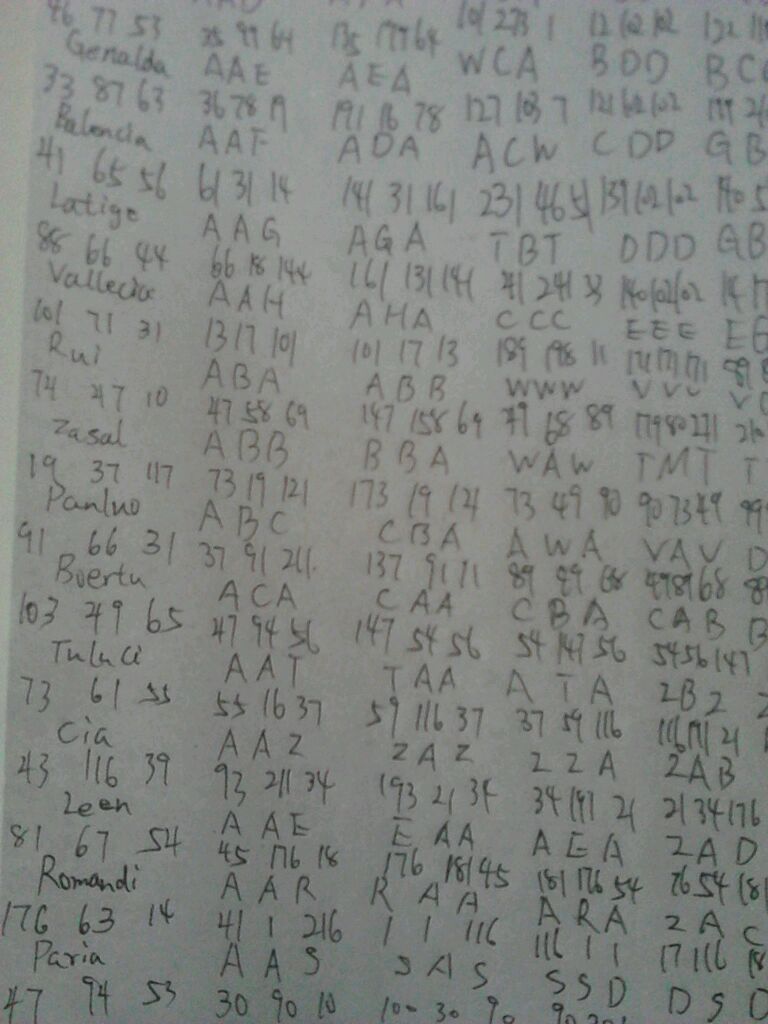 46 77 53 35 99 64 135 179 64 101 273 1 12 102 102
Genalda AAE AEA WCA BDD BC
33 87 63 36 78 19 191 16 78 127 103 7 121 102 102
Balencia AAF ADA ACW CDD GB
41 65 56 61 31 14 141 31 161 231 46 51 131 102 102
Latigo AAG AGA TBT DDD GB
88 66 44 66 18 144 161 131 141 41 241 33 140 102 102
Vallecia AAH AHA CCC EEE
101 71 31 13 17 101 101 17 13 189 198 11 171 171 171
Rui ABA ABB WWW VVV
74 47 10 47 58 69 147 158 69 79 68 89
Zasal ABB BBA WAW TMT T
19 37 117 73 19 121 173 19 121 73 49 90 90 73 49
Panluo ABC CBA AWA VAV D
91 66 31 37 91 211 137 91 71 89 49 68 49 89 68
Boertu ACA CAA CBA CAB B
103 49 65 47 94 56 147 54 56 54 147 56 54 56 147
Tuluci AAT TAA ATA 2B2 2
73 61 55 55 16 37 59 116 37 37 59 116 116 171 21
Cia AAZ ZAZ 22A 2AB
43 116 39 93 211 34 193 21 34 34 191 21 21 34 176
Leen AAE EAA AEA 2AD
81 67 54 45 176 18 176 181 45 181 176 54 76 54 181
Romandi AAR RAA ARA 2AC
176 63 14 41 1 216 1 1 116 116 1 1 17 116
Paria AAS SAS SSD DSD
47 94 53 30 90 10 100 30 90